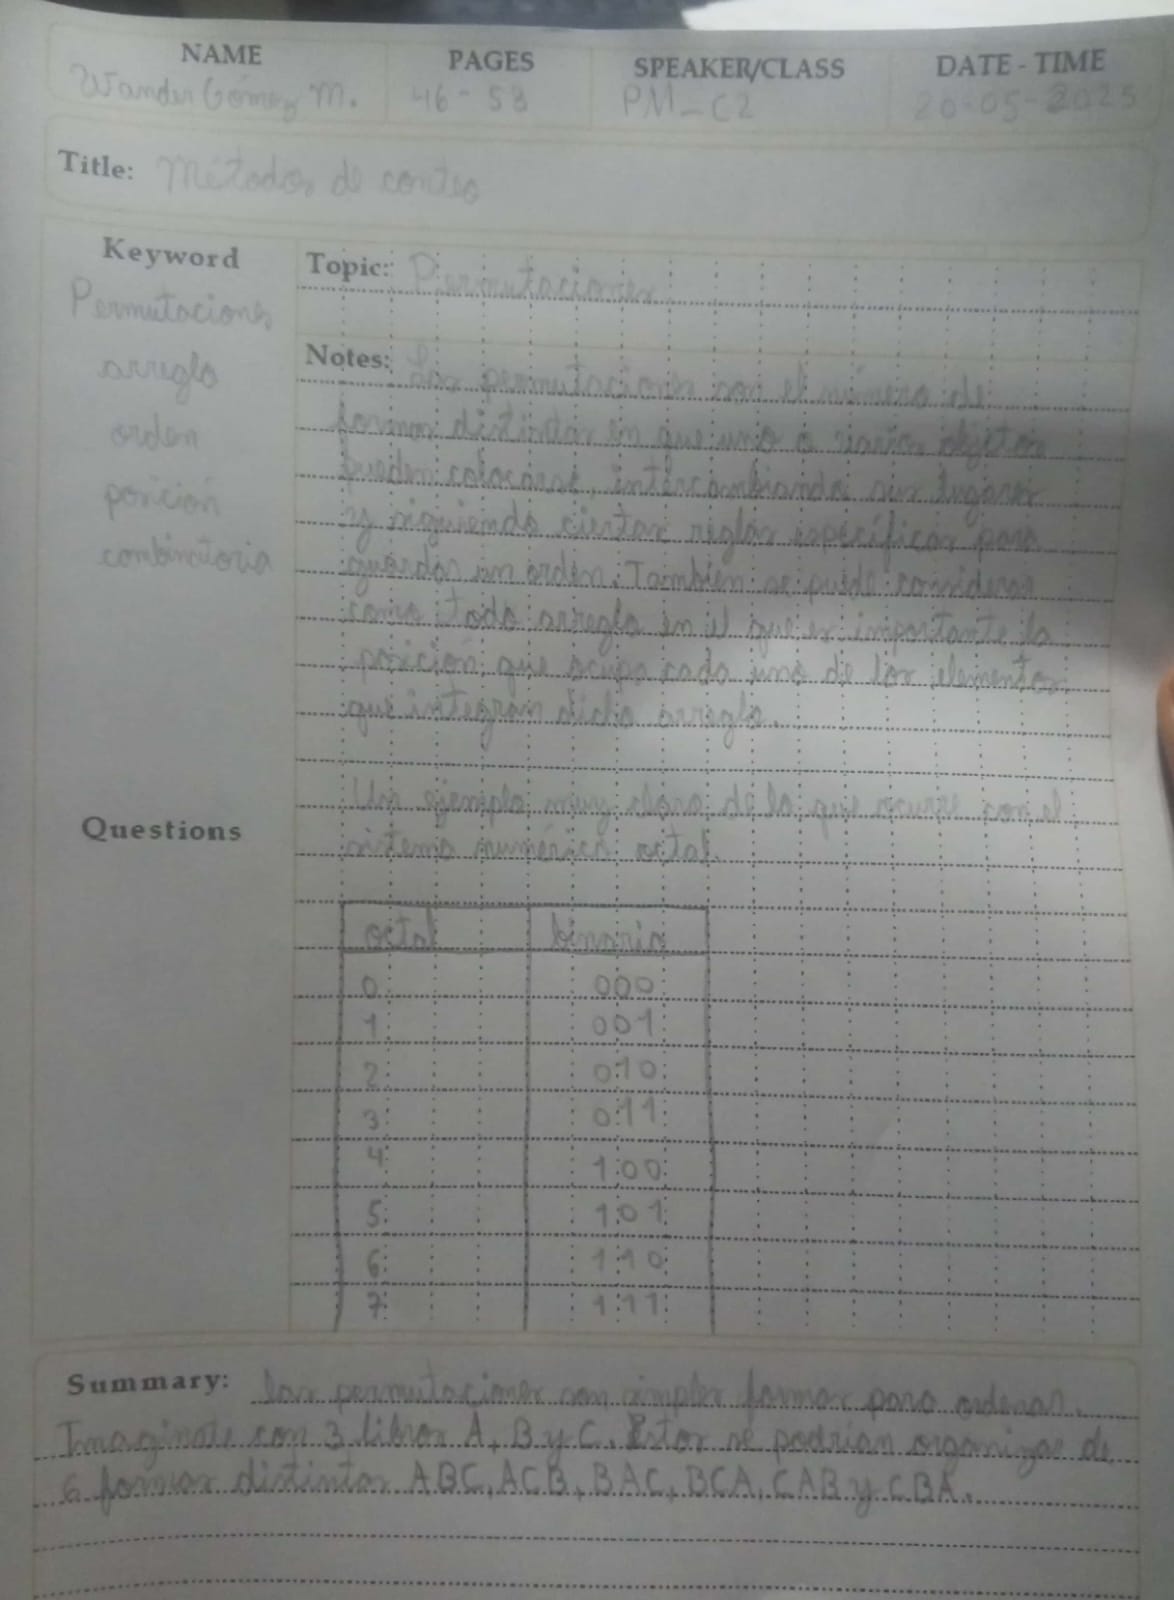 NAME PAGES SPEAKER/CLASS DATE - TIME
Wander Gómez M. 46 - 53 PM-C2 20-05-2025
Title: Métodos de conteo
Keyword
Permutaciones
arreglo
orden
posición
combinatoria
Topic: Permutaciones
Notes: Las permutaciones son el número de
formas distintas en que uno o varios objetos
pueden colocarse, intercambiando sus lugares
y siguiendo ciertas reglas específicas para
guardar un orden. Tambien se puede considerar
como todo arreglo en el que es importante la
posición que ocupa cada uno de los elementos
que integran dicho arreglo.
Un ejemplo muy claro de lo que ocurre con el
sistema numérico octal.
Questions
octal binario
0 000
1 001
2 010
3 011
4 100
5 101
6 110
7 111
Summary: las permutaciones son simples formas para ordenar.
Imaginate con 3 libros A, B y C. Estos se podrian organizar de
6 formas distintas ABC, ACB, BAC, BCA, CAB y CBA.